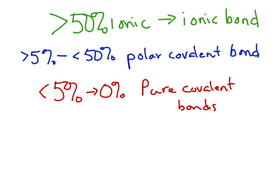 >50% Ionic → ionic bond
>5% - <50% polar covalent bond
<5% → 0% Pure covalent
bonds